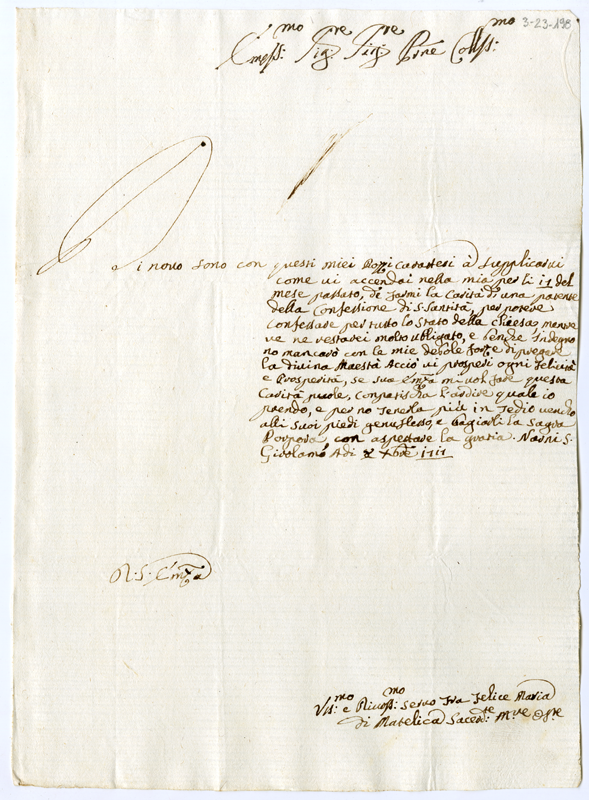 3-23-198
Em͞oss: mo Sig: re Sig: re P͞rne Coll͞ss: mo
Di novo sono con questi miei Rozzi Caratteri à Supplicarvi
come vi accennai nella mia per li 11 del
mese passato, di farmi la Carità di una patente
della Confessione di S. Santità, per potere
Confessare per tutto lo Stato della Chiesa, mentre
ve ne restarei molto ubligato, e benche Indegno
no mancarò con le mie debole forze di pregare
la divina Maestà Acciò vi prosperi ogni felicità
e Prosperità, se sua Em͞za mi vol fare questa
Carità puole, Conpatischa l'ardire quale io
prendo, e per no tenerla più in Tedio vendo
alli suoi piedi genuflesso, e bagiarli la Sagra
Porpora con aspettare la gratia. Narni S.
Girolamo Adi X͞bre 1717
D. S. Em͞za
Um: mo e Divotiss: mo Servo Fra Felice Maria
di Matelica Sacerd: te M: re Os: re